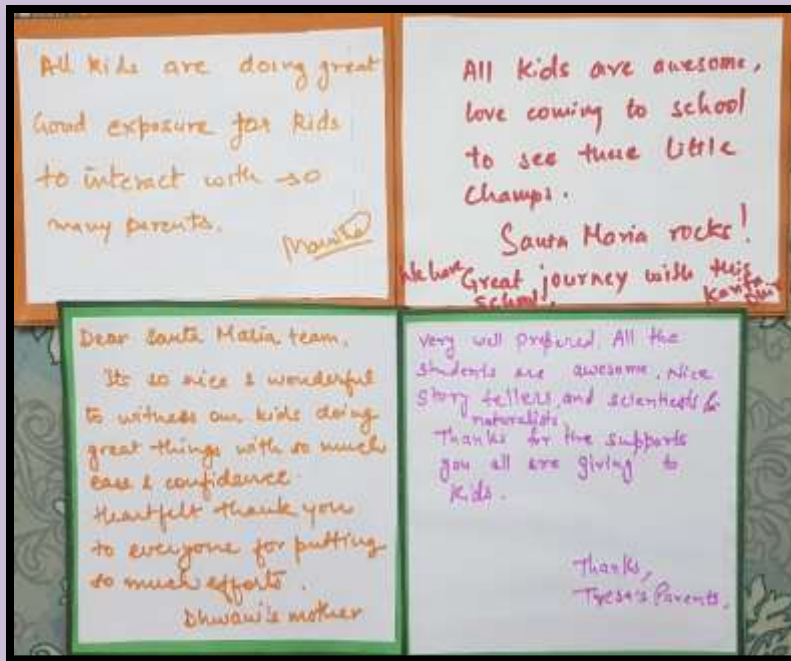 All kids are doing great
Good exposure for kids
to interact with so
many parents.
All kids are awesome,
love coming to school
to see these little
champs.
Santa Maria rocks!
We have Great journey with this
school.
Dear Santa Maria team,
Its so nice & wonderful
to witness our kids doing
great things with so much
ease & confidence.
Heartfelt thank you
to everyone for putting
so much efforts.
Dhwani's mother
Very well prepared. All the
students are awesome. Nice
story tellers, and scientists &
naturalists.
Thanks for the supports
you all are giving to
kids.
Thanks,
Parents.